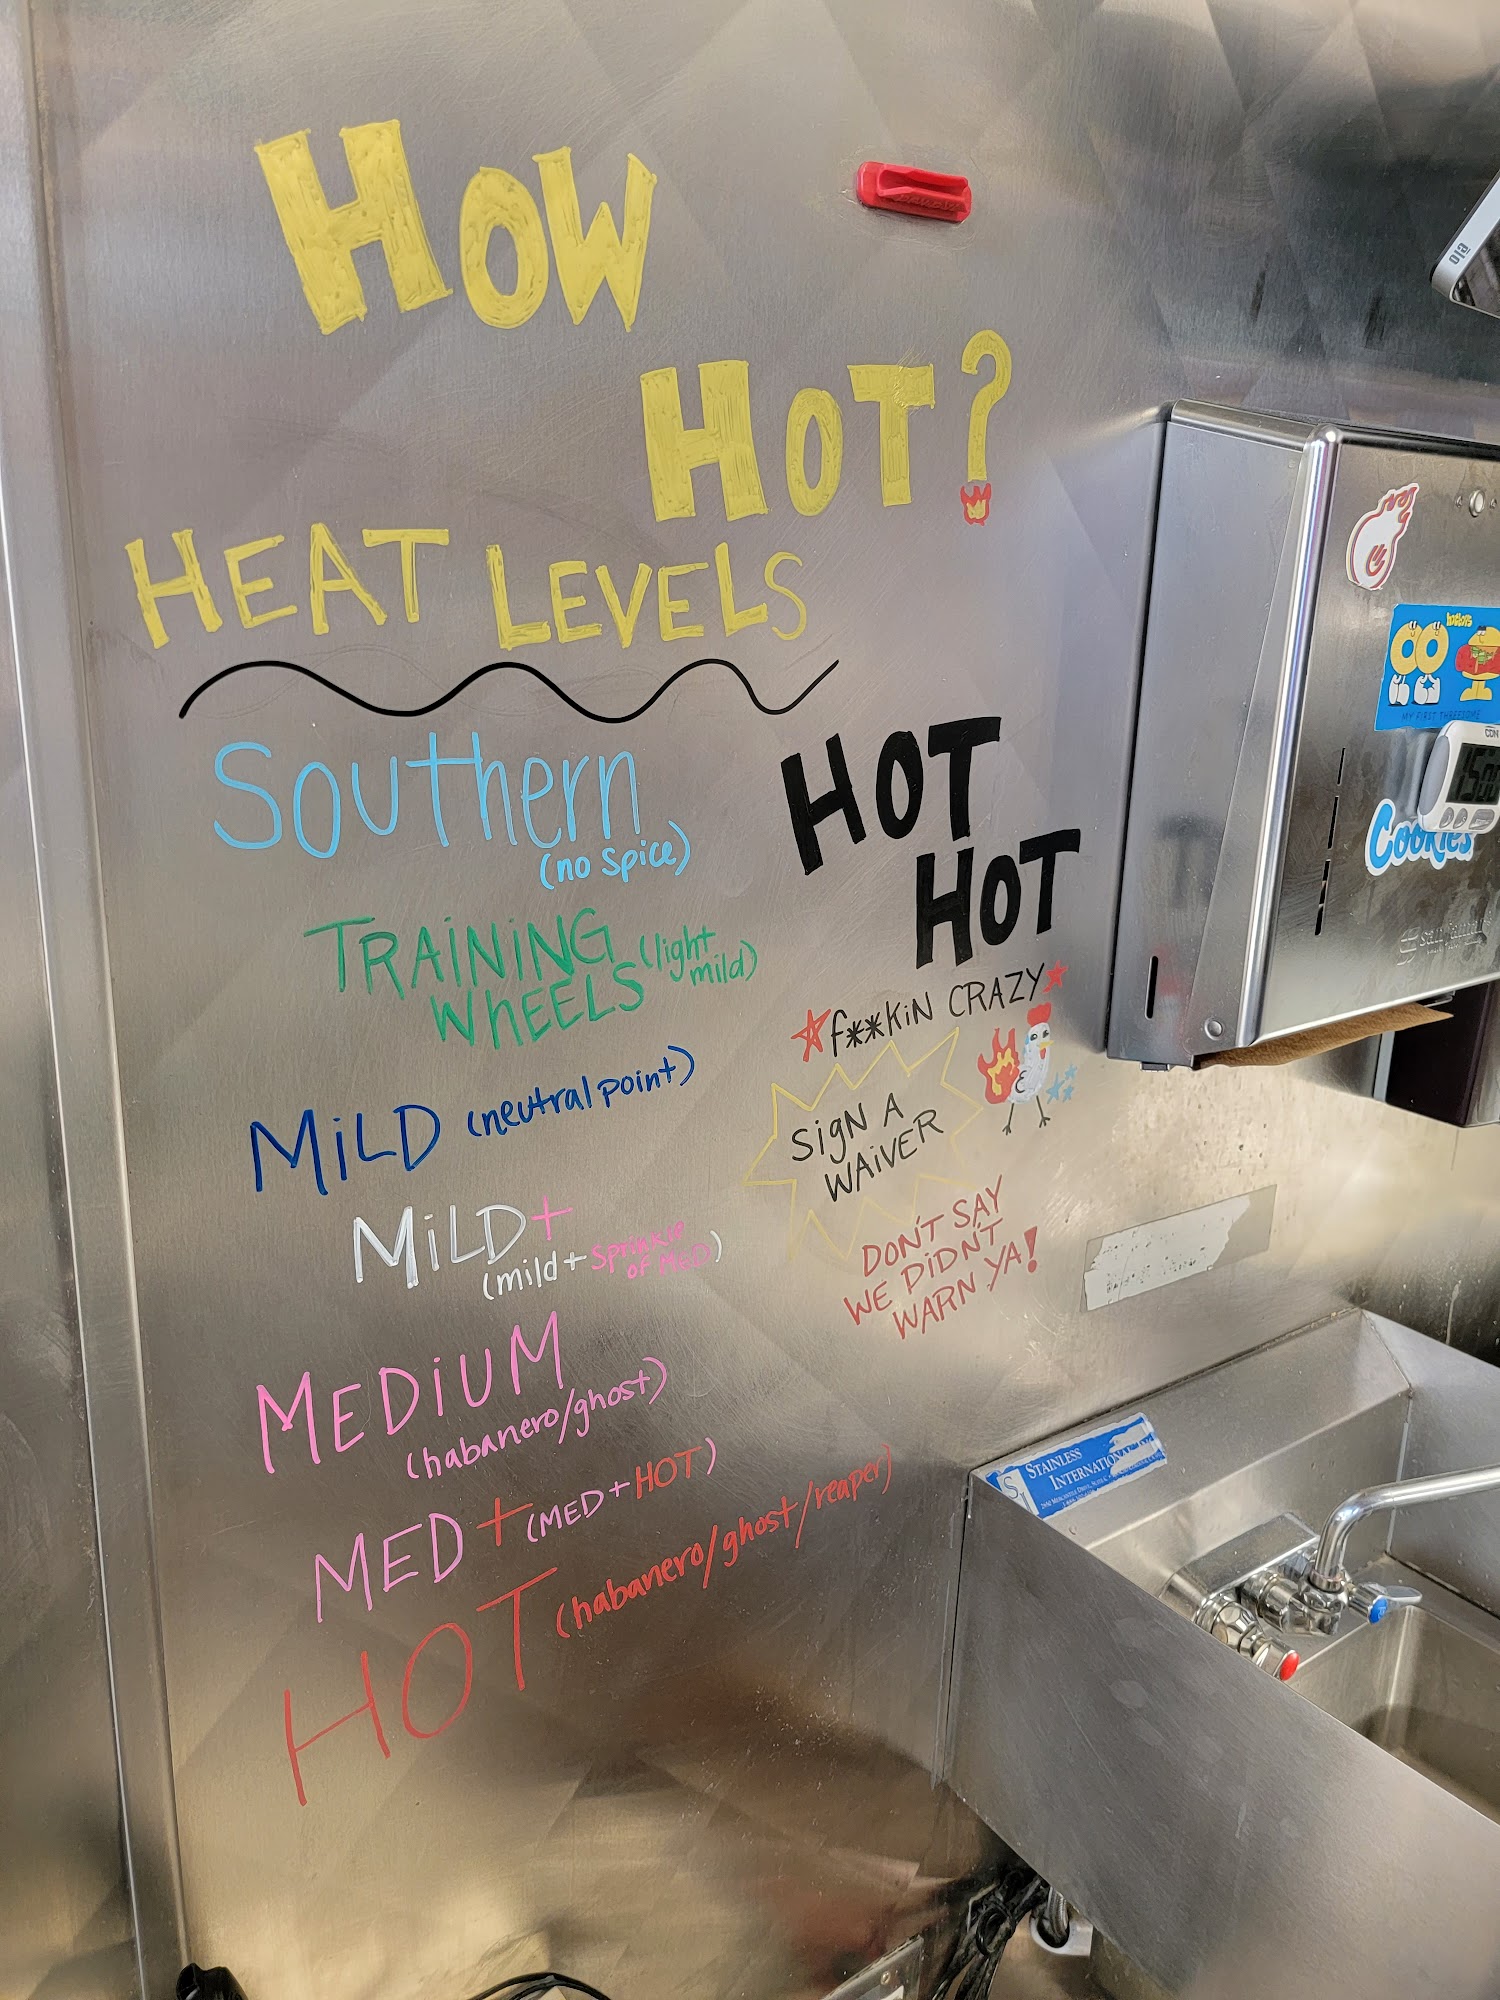 HOW
HOT?
HEAT LEVELS
Southern
(no spice)
TRAiNiNG
WHEELS (light
mild)
MiLD (neutral point)
MiLD+
(mild + Sprinkle
of MED)
MEDiUM
(habanero/ghost)
MED + (MED + HOT)
HOT (habanero/ghost/reaper)
HOT
HOT
f**KiN CRAZY
SigN A
WAiVER
DON'T SAY
WE DiDN'T
WARN YA!
MY FIRST THREESOME
CDN
Cookies
STAINLESS
INTERNATIONAL
SI